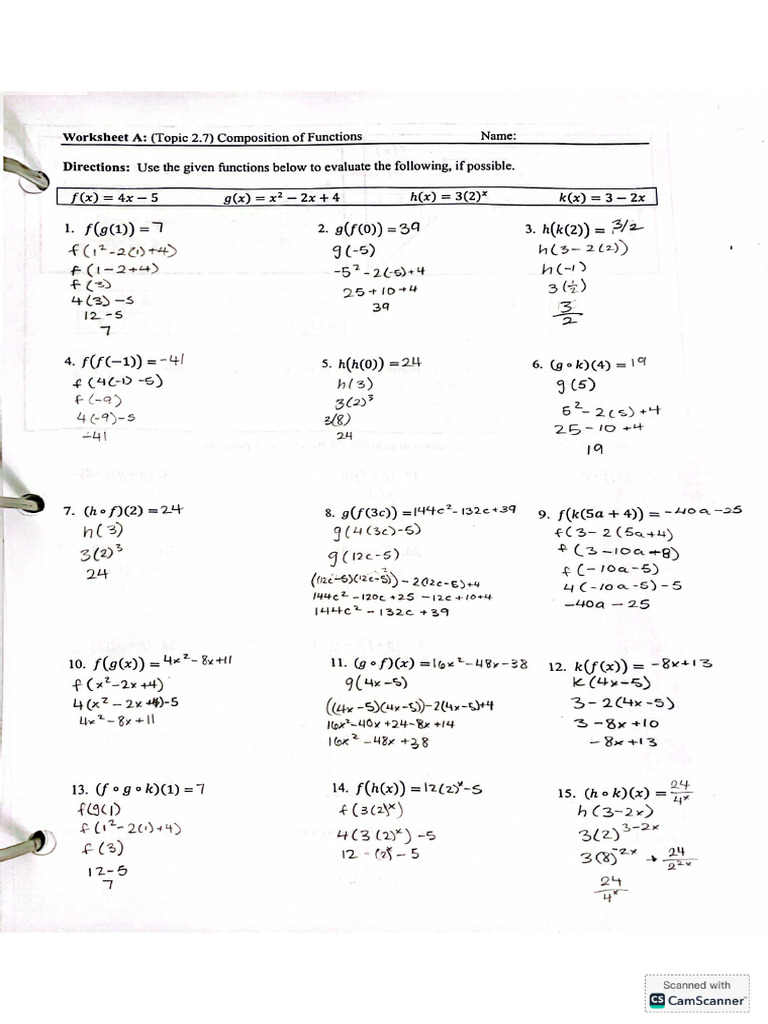 Worksheet A: (Topic 2.7) Composition of Functions Name:
Directions: Use the given functions below to evaluate the following, if possible.
f(x) = 4x − 5 g(x) = x² − 2x + 4 h(x) = 3(2)ˣ k(x) = 3 − 2x
1. f(g(1)) = 7
f(1²-2(1)+4)
f(1-2+4)
f(3)
4(3)-5
12-5
7
2. g(f(0)) = 39
g(-5)
-5²-2(-5)+4
25+10+4
39
3. h(k(2)) = 3/2
h(3-2(2))
h(-1)
3(1/2)
3/2
4. f(f(−1)) = -41
f(4(-1)-5)
f(-9)
4(-9)-5
-41
5. h(h(0)) = 24
h(3)
3(2)³
3(8)
24
6. (g ∘ k)(4) = 19
g(5)
5²-2(5)+4
25-10+4
19
7. (h ∘ f)(2) = 24
h(3)
3(2)³
24
8. g(f(3c)) = 144c²-132c+39
g(4(3c)-5)
g(12c-5)
((12c-5)(12c-5))-2(12c-5)+4
144c²-120c+25-12c+10+4
144c²-132c+39
9. f(k(5a + 4)) = -40a-25
f(3-2(5a+4)
f(3-10a+8)
f(-10a-5)
4(-10a-5)-5
-40a-25
10. f(g(x)) = 4x²-8x+11
f(x²-2x+4)
4(x²-2x+4)-5
4x²-8x+11
11. (g ∘ f)(x) = 16x²-48x-38
g(4x-5)
((4x-5)(4x-5))-2(4x-5)+4
16x²-40x+24-8x+14
16x²-48x+38
12. k(f(x)) = -8x+13
k(4x-5)
3-2(4x-5)
3-8x+10
-8x+13
13. (f ∘ g ∘ k)(1) = 7
f(g(1)
f(1²-2(1)+4)
f(3)
12-5
7
14. f(h(x)) = 12(2)ˣ-5
f(3(2)ˣ)
4(3(2)ˣ)-5
12-(2)ˣ-5
15. (h ∘ k)(x) = 24/4ˣ
h(3-2x)
3(2)³⁻²ˣ
3(8)⁻²ˣ → 24/2²ˣ
24/4ˣ
Scanned with
CS CamScanner